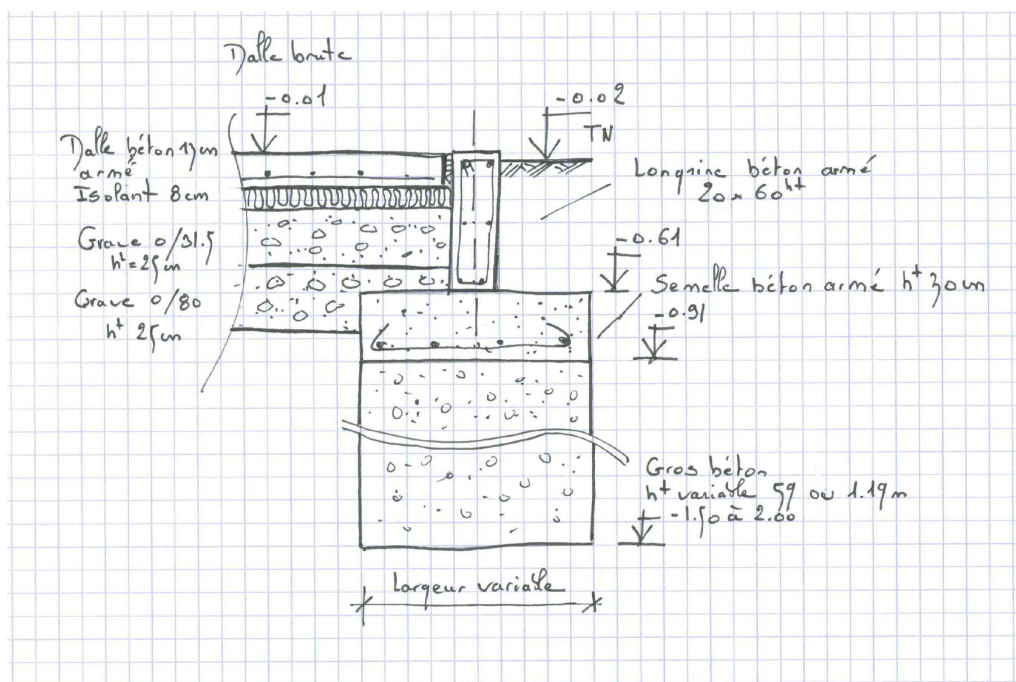 Dalle brute
-0.01
-0.02
TN
Dalle béton 17cm
armé
Isolant 8cm
Grave 0/31.5
ht=25cm
Grave 0/80
ht 25cm
Longrine béton armé
20 x 60ht
-0.61
Semelle béton armé ht 30cm
-0.91
Gros béton
ht variable 59 ou 1.19m
-1.50 à 2.00
Largeur variable